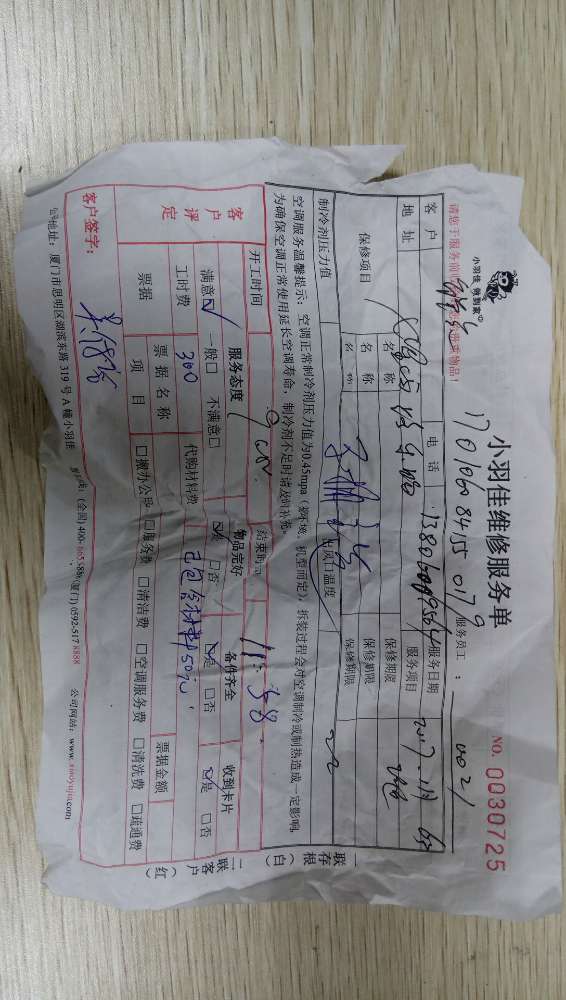 小羽佳 做到家
小羽佳维修服务单
NO. 0030725
请您于服务前
贵重物品！
服务员工：
0021
客户
电话
服务日期
地址
服务项目
保修项目
名称
保修期限
名称
保修期限
保修期限
制冷剂压力值
出风口温度
空调服务温馨提示：空调正常制冷剂压力值为0.45mpa（按环境、机型而定），拆装过程会对空调制冷或制热造成一定影响，
为确保空调正常使用延长空调寿命，制冷剂不足时请及时补充。
开工时间
结束时间
客户评定
服务态度
物品完好
备件齐全
收到卡片
满意☑ 一般□ 不满意□
☑是 □否
☑是 □否
☑是 □否
工时费
300
代购材料费
已包含材料50元
票据
票据名称
票据金额
项目
□搬办公 □服务费 □清洁费 □空调服务费 □清洗费 □疏通费
客户签字：
地址：厦门市思明区湖滨东路 319 号 A 幢小羽佳
(全国) 400-
(厦门) 0592-517 8888
公司网站：www.xiaoyujia.com
一联存根（白）
二联客户（红）